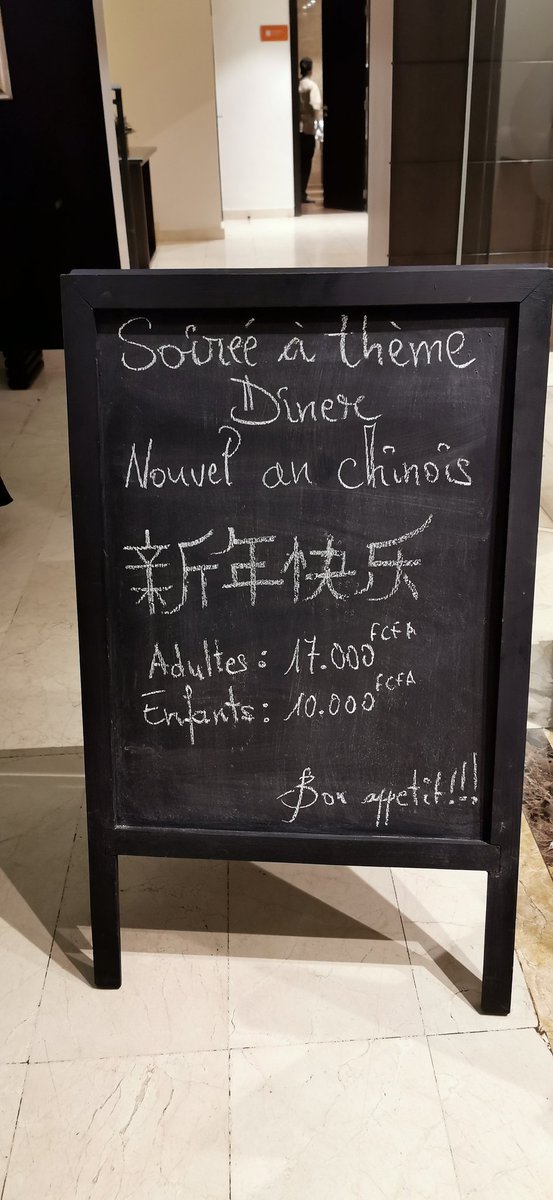 Soirée à thème
Diner
Nouvel an chinois
新年快乐
Adultes : 17.000 FCFA
Enfants : 10.000 FCFA
Bon appetit!!!